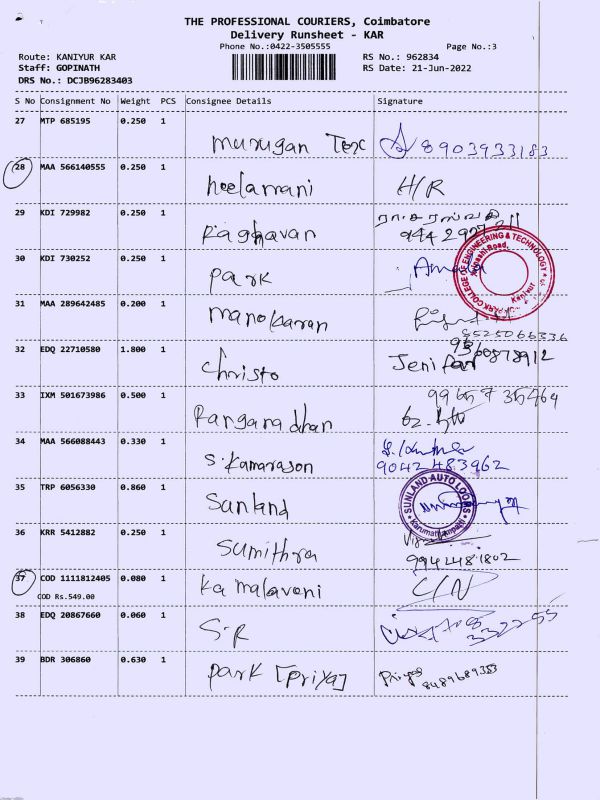 THE PROFESSIONAL COURIERS, Coimbatore
Delivery Runsheet - KAR
Phone No.:0422-3505555
Page No.:3
Route: KANIYUR KAR
RS No.: 962834
Staff: GOPINATH
RS Date: 21-Jun-2022
DRS No.: DCJB96283403
S No Consignment No Weight PCS Consignee Details Signature
27 MTP 685195 0.250 1
Murugan Tex 8903933183
28 MAA 566140555 0.250 1
neelamani H/R
29 KDI 729982 0.250 1
Raghavan
30 KDI 730252 0.250 1
park
PARK COLLEGE OF ENGINEERING & TECHNOLOGY
Kaniyur
31 MAA 289642485 0.200 1
manokaran
8525066336
32 EDQ 22710580 1.800 1
christo
9360878912
33 IXM 501673986 0.500 1
9965735464
34 MAA 566088443 0.330 1
9042483962
35 TRP 6056330 0.860 1
Sunland
SUNLAND AUTO LOOMS
36 KRR 5412882 0.250 1
Sumithra
9942481802
37 COD 1111812405 0.080 1
COD Rs.549.00
Kamalaveni C/N
38 EDQ 20867660 0.060 1
S.R
332255
39 BDR 306860 0.630 1
park [priya] Priya
8489689353